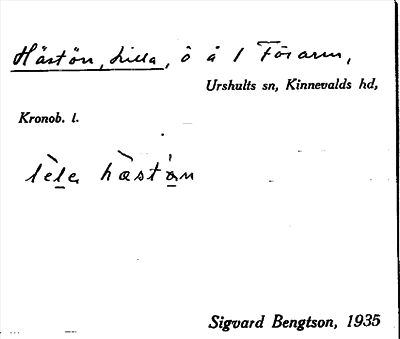 Hästön, Lilla, ö å 1 Föraren,
Urshults sn, Kinnevalds hd,
Kronob. l.
lèle hàst'ọn
Sigvard Bengtson, 1935